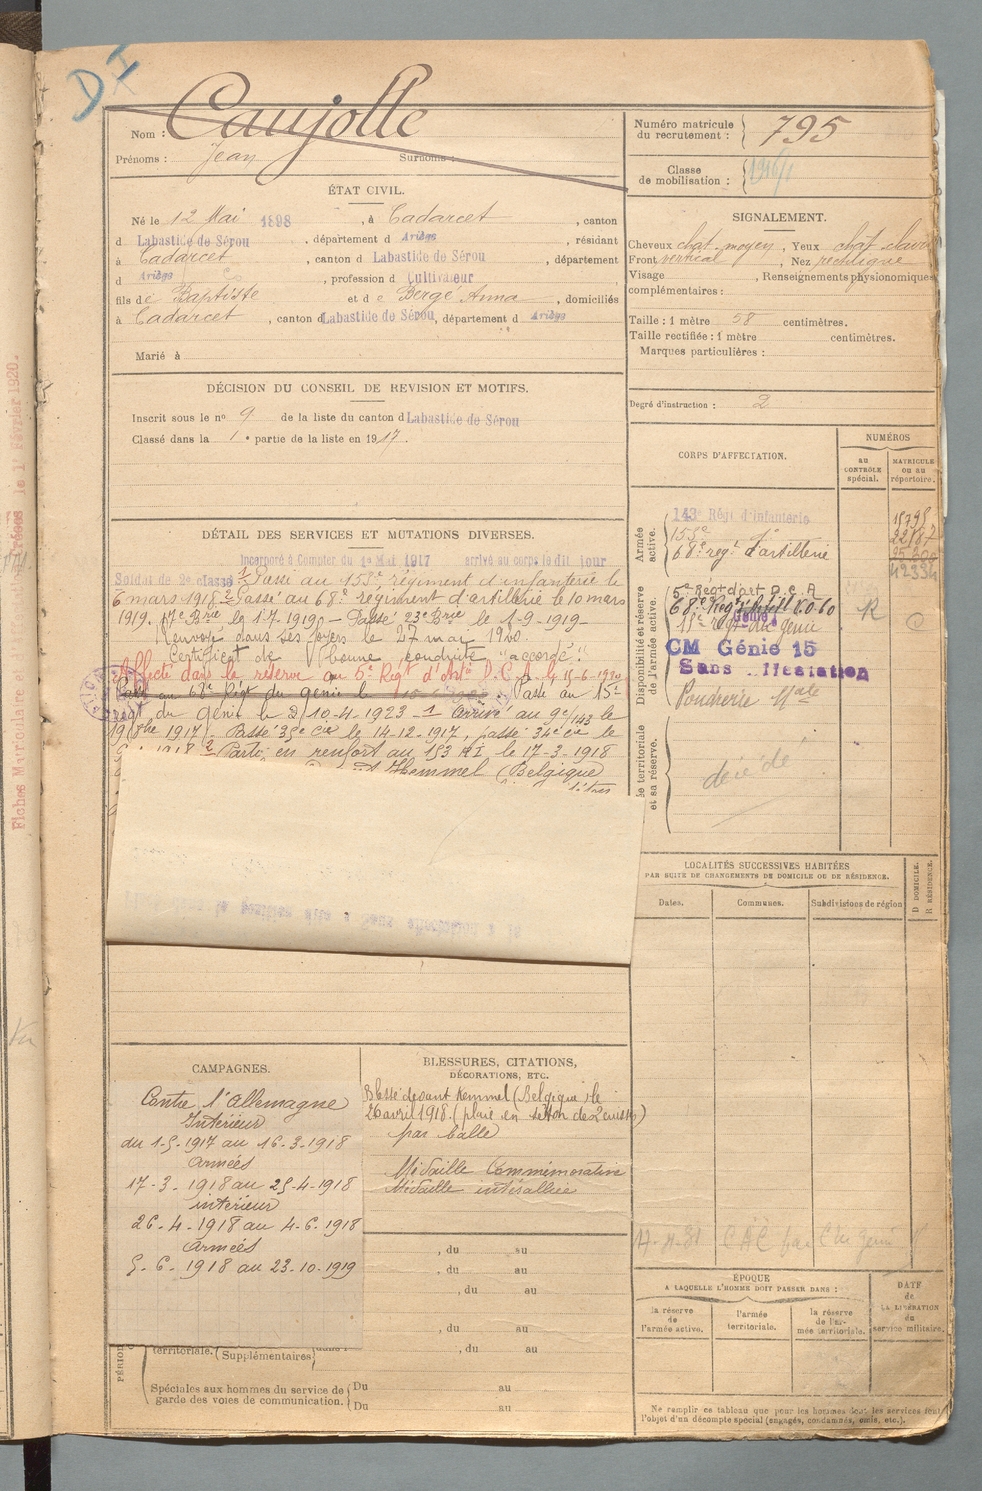 D I
Nom : Caujolle
Prénoms : Jean Surnoms :
Numéro matricule
du recrutement : 795
Classe
de mobilisation :
ÉTAT CIVIL.
Né le 12 Mai 1898, à Cadarcet, canton
d Labastide de Sérou, département d Ariège, résidant
à Cadarcet, canton d Labastide de Sérou, département
d Ariège, profession d Cultivateur
fils de Baptiste et de Bergé Anna, domiciliés
à Cadarcet, canton d Labastide de Sérou, département d Ariège
Marié à
SIGNALEMENT.
Cheveux chat. moyen, Yeux chat. clair
Front vertical, Nez rectiligne
Visage , Renseignements physionomiques
complémentaires :
Taille : 1 mètre 58 centimètres.
Taille rectifiée : 1 mètre centimètres.
Marques particulières :
Degré d'instruction : 2
DÉCISION DU CONSEIL DE REVISION ET MOTIFS.
Inscrit sous le n° 9 de la liste du canton d Labastide de Sérou
Classé dans la 1e partie de la liste en 1917.
DÉTAIL DES SERVICES ET MUTATIONS DIVERSES.
Incorporé à Compter du 1er Mai 1917 arrivé au corps le dit jour
Soldat de 2e classe 1 Passé au 153e régiment d'infanterie le
6 mars 1918. 2 Passé au 68e régiment d'artillerie le 10 mars
1919. 17e Brie le 1-7-1919 - Passé 23e Brie le 1-9-1919
Renvoyé dans ses foyers le 27 mai 1920.
Certificat de bonne conduite "accordé".
Affecté dans la réserve au 5e Régt d'Art. D.C.A. le 15-6-1920
au 67e Régt du génie le Passé au 15e
régt du génie le 10-4-1923 - 1 Arrivé au 9e/143 le
1917). Passé 35e Cie le 14-12-1917, passé 34e Cie le
1918 2 Parti en renfort au 153 RI le 17-3-1918
Kemmel (Belgique
CORPS D'AFFECTATION.
NUMÉROS
AU CONTRÔLE spécial.
MATRICULE OU AU répertoire.
Armée active.
143e Régt d'Infanterie
153e do
68e régt d'artillerie
Disponibilité et réserve de l'armée active.
5e Régt d'art D.C.A
Génie
15e régt du génie
R
C
CM Génie 15
Sans affectation
Poudrerie Nale
Armée territoriale et sa réserve.
décédé
LOCALITÉS SUCCESSIVES HABITÉES
PAR SUITE DE CHANGEMENTS DE DOMICILE OU DE RÉSIDENCE.
Dates.
Communes.
Subdivisions de région
D DOMICILE.
R RÉSIDENCE.
CAMPAGNES.
Contre l'Allemagne
Intérieur
du 1-5-1917 au 16-3-1918
Armées
17-3-1918 au 25-4-1918
intérieur
26-4-1918 au 4-6-1918
Armées
5-6-1918 au 23-10-1919
BLESSURES, CITATIONS,
DÉCORATIONS, ETC.
Blessé devant Kemmel (Belgique) le
26 avril 1918. (plaie en séton des 2 cuisses)
par balle
Médaille Commémorative
Médaille interalliée
, du au
, du au
, du au
, du au
, du au
territoriale. (Supplémentaires)
Spéciales aux hommes du service de
garde des voies de communication.
Du au
Du au
ÉPOQUE
A LAQUELLE L'HOMME DOIT PASSER DANS :
la réserve de l'armée active.
l'armée territoriale.
la réserve de l'armée territoriale.
DATE
de
LA LIBÉRATION
du
service militaire.
Ne remplir ce tableau que pour les hommes dont les services font
l'objet d'un décompte spécial (engagés, condamnés, omis, etc.).